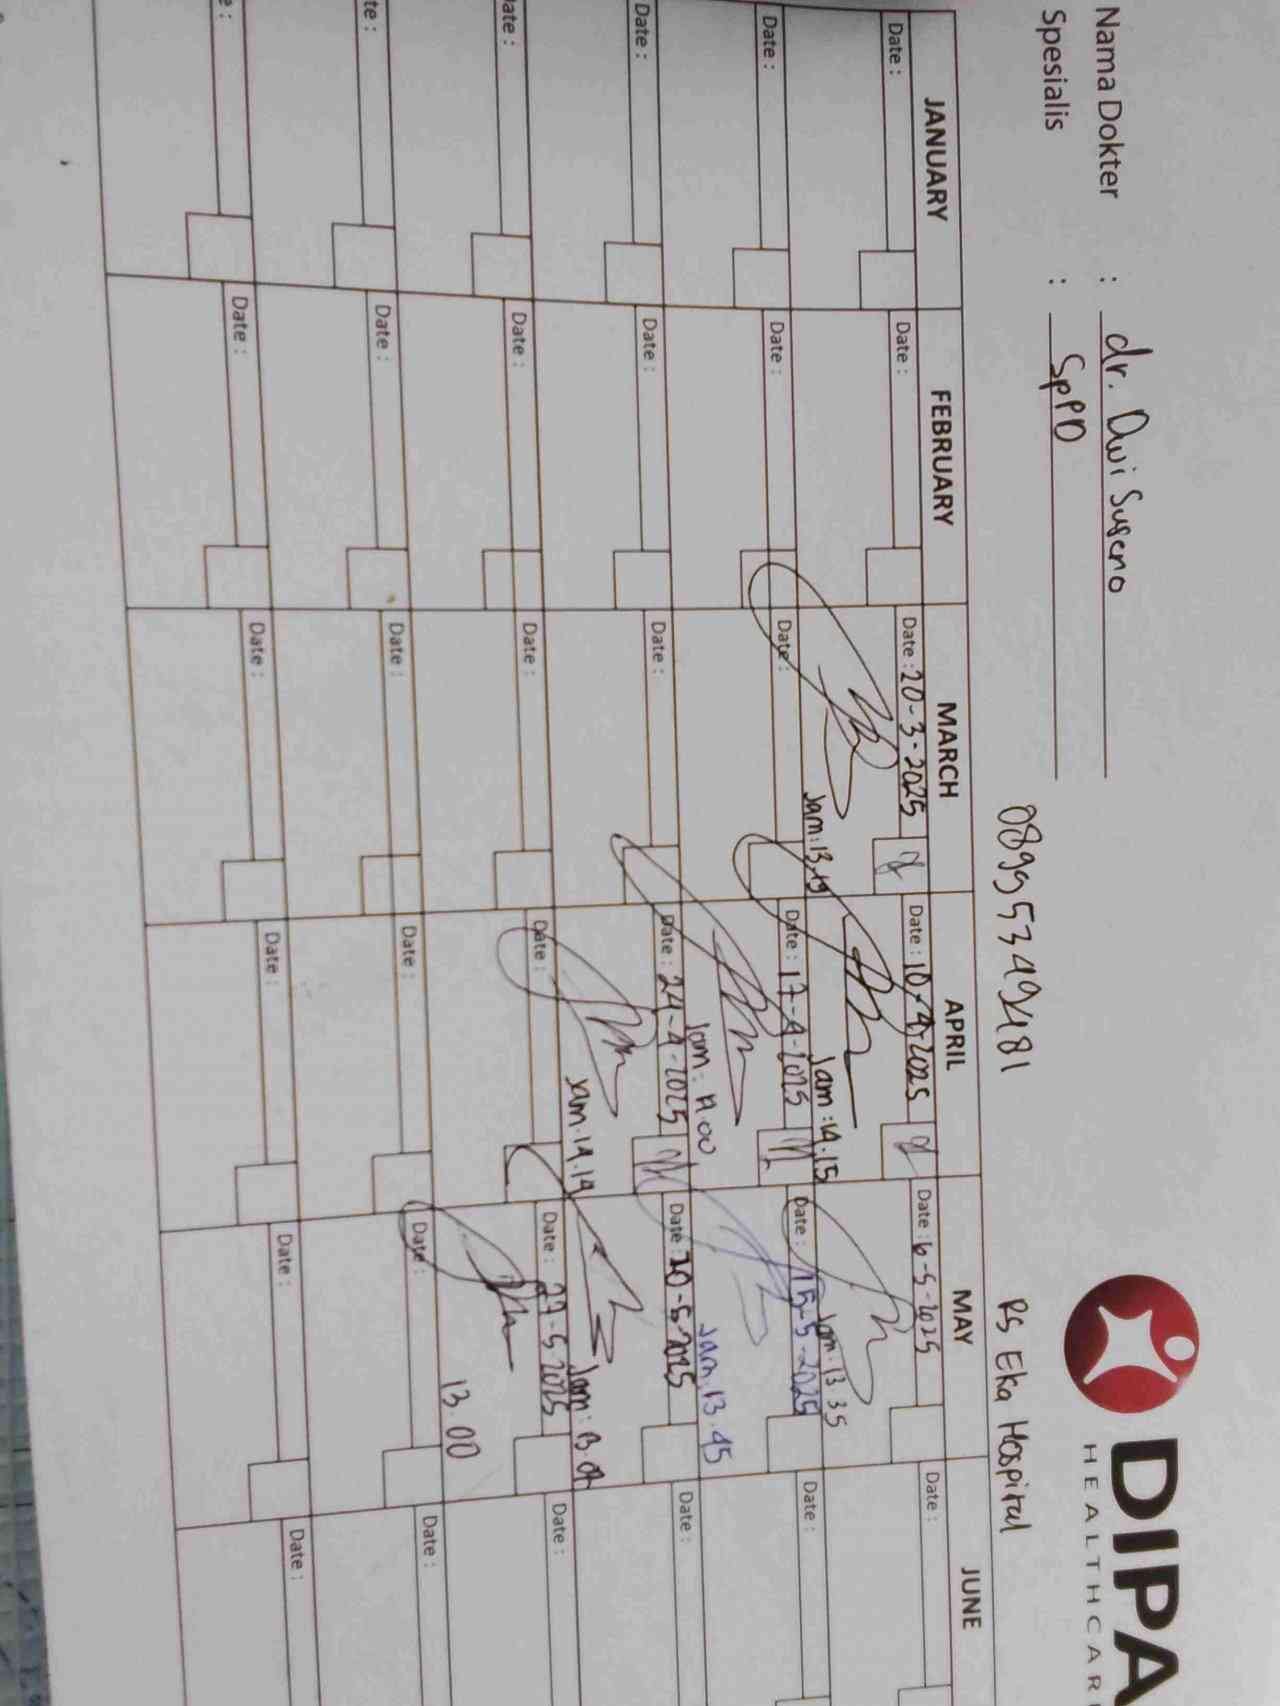 DIPA
HEALTHCAR
Nama Dokter : dr. Dwi Suseno
Spesialis : SpPD
RS Eka Hospital
JANUARY FEBRUARY MARCH APRIL MAY JUNE
Date : Date : Date : 20-3-2025 Date : 10-4-2025 Date : 6-5-2025 Date :
Jam : 13.19 Jam : 14.15 Jam : 13.35
Date : Date : Date : Date : 17-4-2025 Date : 15-5-2025 Date :
Jam : 11.00 Jam : 13.45
Date : Date : Date : Date : 24-4-2025 Date : 20-5-2025 Date :
Jam. 14.14 Jam :
ate : Date : Date : Date : Date : 27-5 2025 Date :
13.00
te : Date : Date : Date : Date : Date :
e : Date : Date : Date : Date : Date :